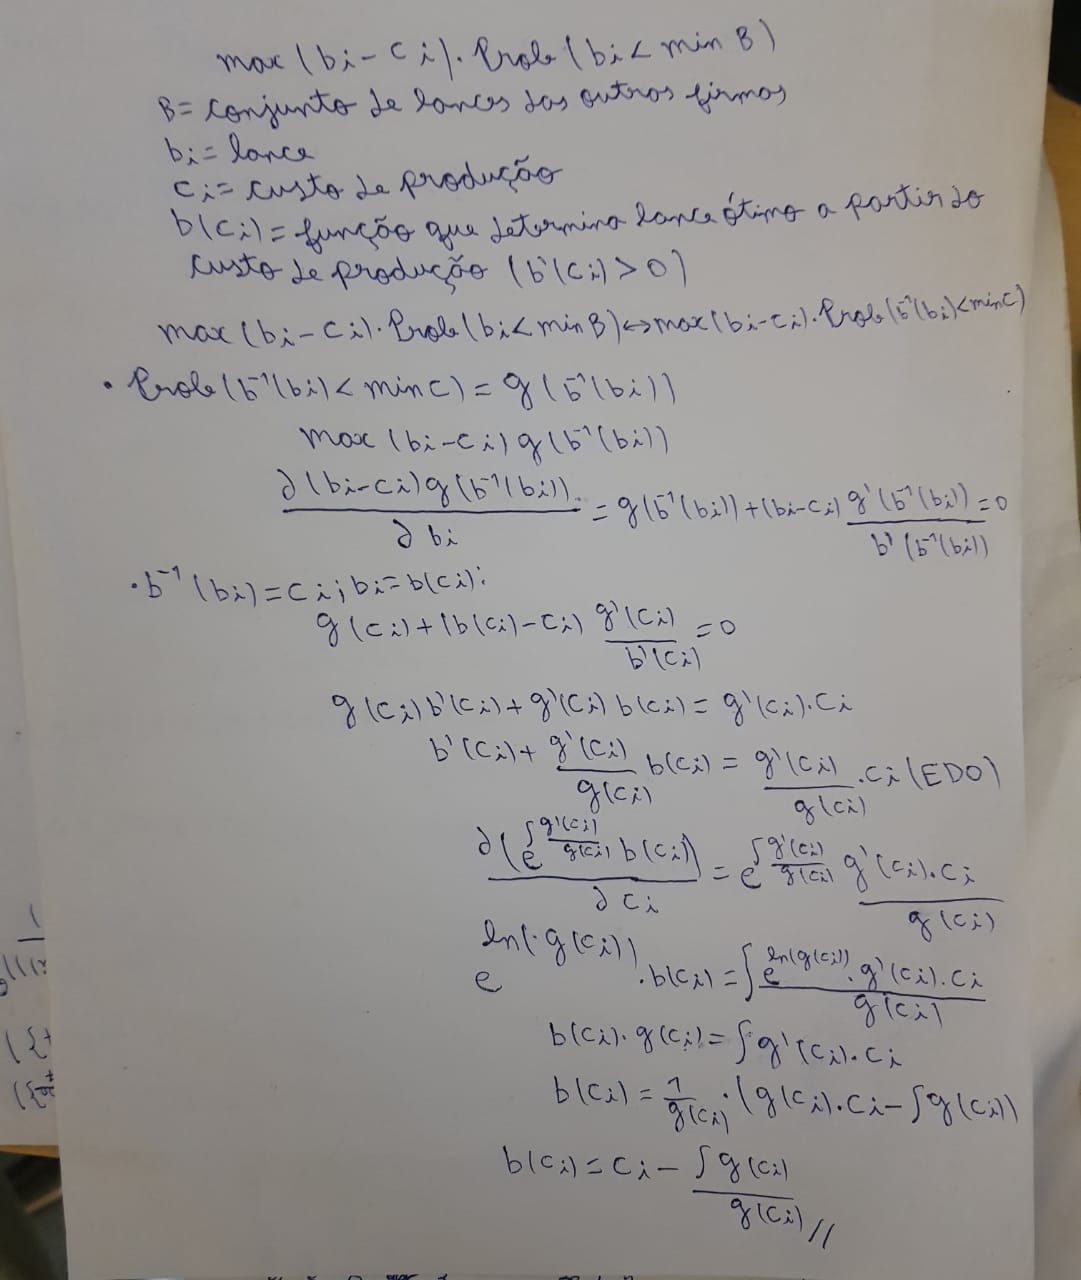 max (bi - ci). Prob (bi < min B)
B = conjunto de lances das outras firmas
bi = lance
ci = custo de produção
b(ci) = função que determina lance ótimo a partir do
custo de produção (b'(ci) > 0)
max (bi - ci). Prob (bi < min B) ⇔ max (bi - ci). Prob (b⁻¹(bi) < min C)
• Prob (b⁻¹(bi) < min C) = g (b⁻¹(bi))
max (bi - ci) g (b⁻¹(bi))
∂(bi - ci) g (b⁻¹(bi)) / ∂bi = g(b⁻¹(bi)) + (bi - ci) g'(b⁻¹(bi)) / b'(b⁻¹(bi)) = 0
• b⁻¹(bi) = ci; bi = b(ci):
g(ci) + (b(ci) - ci) g'(ci) / b'(ci) = 0
g(ci) b'(ci) + g'(ci) b(ci) = g'(ci). ci
b'(ci) + g'(ci) / g(ci) b(ci) = g'(ci) / g(ci) . ci (EDO)
∂(e^(∫ g'(ci) / g(ci)) b(ci)) / ∂ci = e^(∫ g'(ci) / g(ci)) g'(ci). ci / g(ci)
e^(ln(g(ci))) . b(ci) = ∫ e^(ln(g(ci))) . g'(ci). ci / g(ci)
b(ci). g(ci) = ∫ g'(ci). ci
b(ci) = 1 / g(ci) . (g(ci). ci - ∫ g(ci))
b(ci) = ci - ∫ g(ci) / g(ci) //